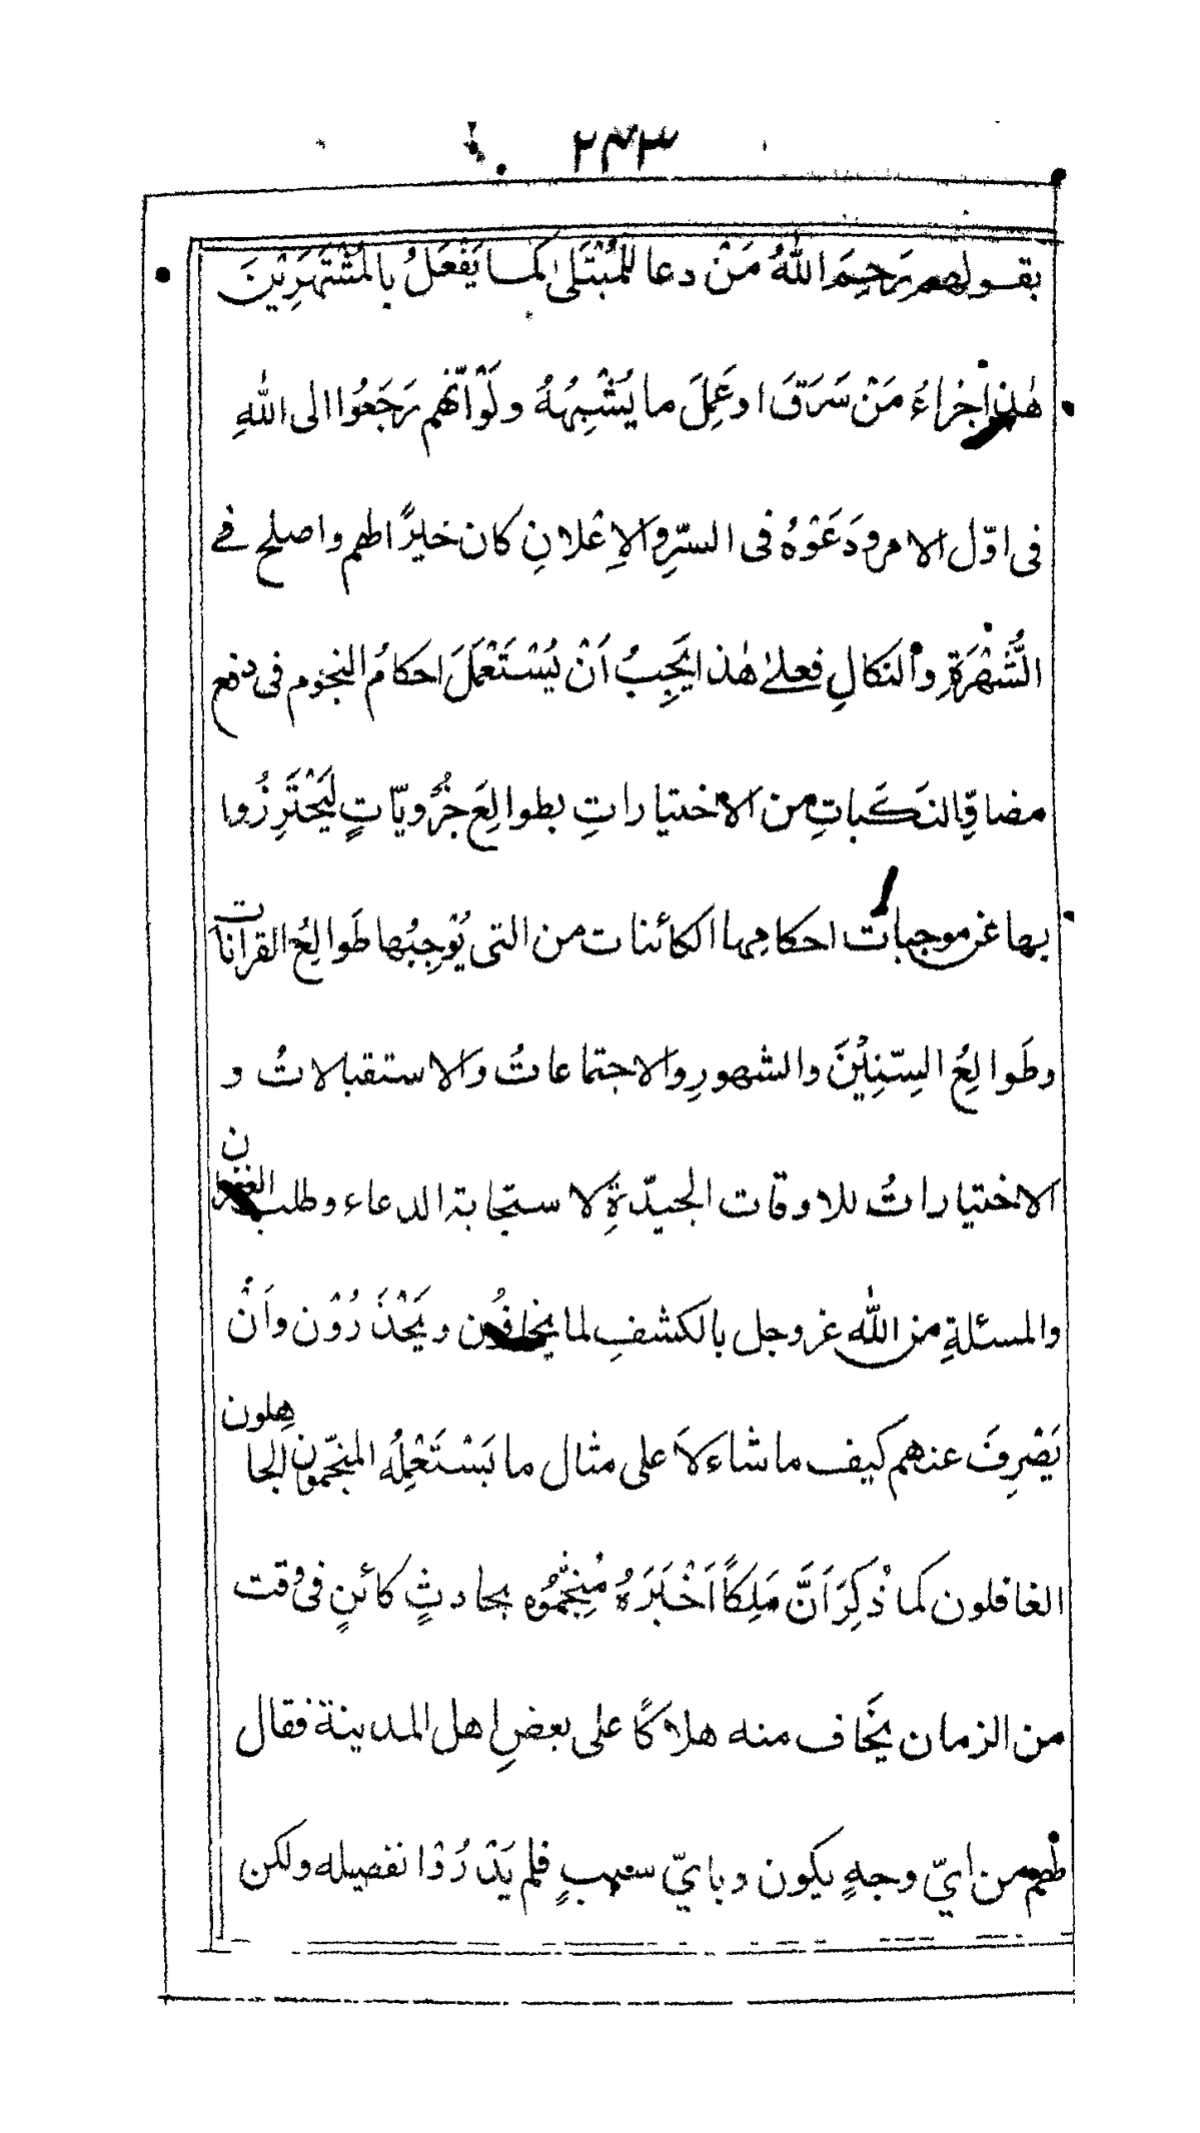 ٢٤٣
بقولهم رَحِمَ اللّٰهُ مَنْ دعا للمُبْتَلىٰ كما يَفْعَلُ بالمُشْتَهَرِيْنَ
هٰذا جزاءُ مَنْ سَرَقَ او عَمِلَ ما يُشْبِهُهُ ولَوْ اَنّهُم رَجَعُوا الى اللّٰهِ
فى اوّل الامر ودَعَوْهُ فى السّرِ والاِعْلانِ كان خيراً لهم واصلح فے
الشُّهْرَةِ والنكالِ فعلىٰ هٰذا يَجِبُ اَنْ يُسْتَعْمَلَ احكامُ النجوم فى دفع
مضاقِ النَكَباتِ من الاختياراتِ بطوالِعَ جُزْويّاتٍ لِيَحْتَرِزُوا
بها عن موجبات احكامها الكائنات من التى يُوْجِبُها طَوالِعُ القرانات
وطَوالِعُ السِّنِيْنَ والشهورِ والاجتماعاتُ والاستقبالاتُ و
الاختياراتُ للاوقات الجيدّةِ لاستجابة الدعاء وطلب الغفران
والمسئلةِ من اللّٰه عز وجل بالكشفِ لما يخافُون ويَحْذَرُوْن واَنْ
يَصْرِفَ عنهم كيف ما شاء لاَ على مثال ما يَسْتَعْمِلُه المنجّمون الجاهلون
الغافلون كما ذُكِرَ اَنَّ مَلِكاً اَخْبَرَهُ مُنَجِّمُوْه بحادثٍ كائنٍ فى وقت
من الزمان يُخَاف منه هلاكاً على بعضِ اهل المدينة فقال
لهم من ايّ وجهٍ يكون وبايّ سببٍ فلم يَدْرُوْا تفصيله ولكن